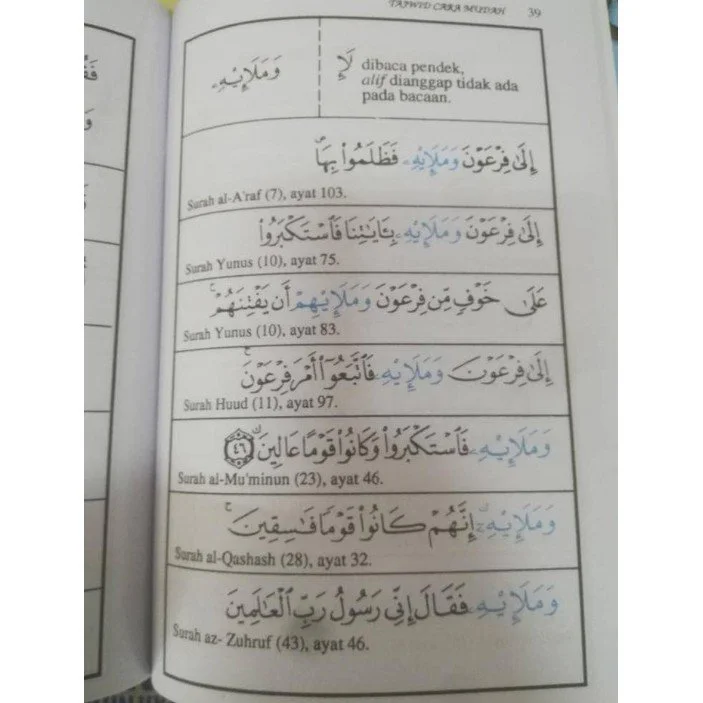 TAJWID CARA MUDAH 39
وَمَلَإِيْهِۦ
لَإِ dibaca pendek,
alif dianggap tidak ada
pada bacaan.
إِلَىٰ فِرْعَوْنَ وَمَلَإِيْهِۦ فَظَلَمُوا۟ بِهَا ۖ
Surah al-A'raf (7), ayat 103.
إِلَىٰ فِرْعَوْنَ وَمَلَإِيْهِۦ بِـَٔايَـٰتِنَا فَٱسْتَكْبَرُوا۟
Surah Yunus (10), ayat 75.
عَلَىٰ خَوْفٍ مِّن فِرْعَوْنَ وَمَلَإِيْهِمْ أَن يَفْتِنَهُمْ ۚ
Surah Yunus (10), ayat 83.
إِلَىٰ فِرْعَوْنَ وَمَلَإِيْهِۦ فَٱتَّبَعُوٓا۟ أَمْرَ فِرْعَوْنَ ۖ
Surah Huud (11), ayat 97.
وَمَلَإِيْهِۦ فَٱسْتَكْبَرُوا۟ وَكَانُوا۟ قَوْمًا عَالِينَ ٤٦
Surah al-Mu'minun (23), ayat 46.
وَمَلَإِيْهِۦٓ ۚ إِنَّهُمْ كَانُوا۟ قَوْمًا فَـٰسِقِينَ
Surah al-Qashash (28), ayat 32.
وَمَلَإِيْهِۦ فَقَالَ إِنِّى رَسُولُ رَبِّ ٱلْعَـٰلَمِينَ
Surah az- Zuhruf (43), ayat 46.